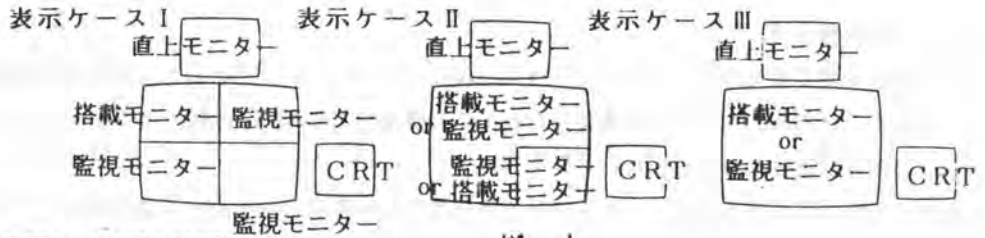 表示ケースⅠ
直上モニター
搭載モニター
監視モニター
監視モニター
監視モニター
CRT
表示ケースⅡ
直上モニター
搭載モニター
or 監視モニター
監視モニター
or 搭載モニター
CRT
表示ケースⅢ
直上モニター
搭載モニター
or
監視モニター
CRT